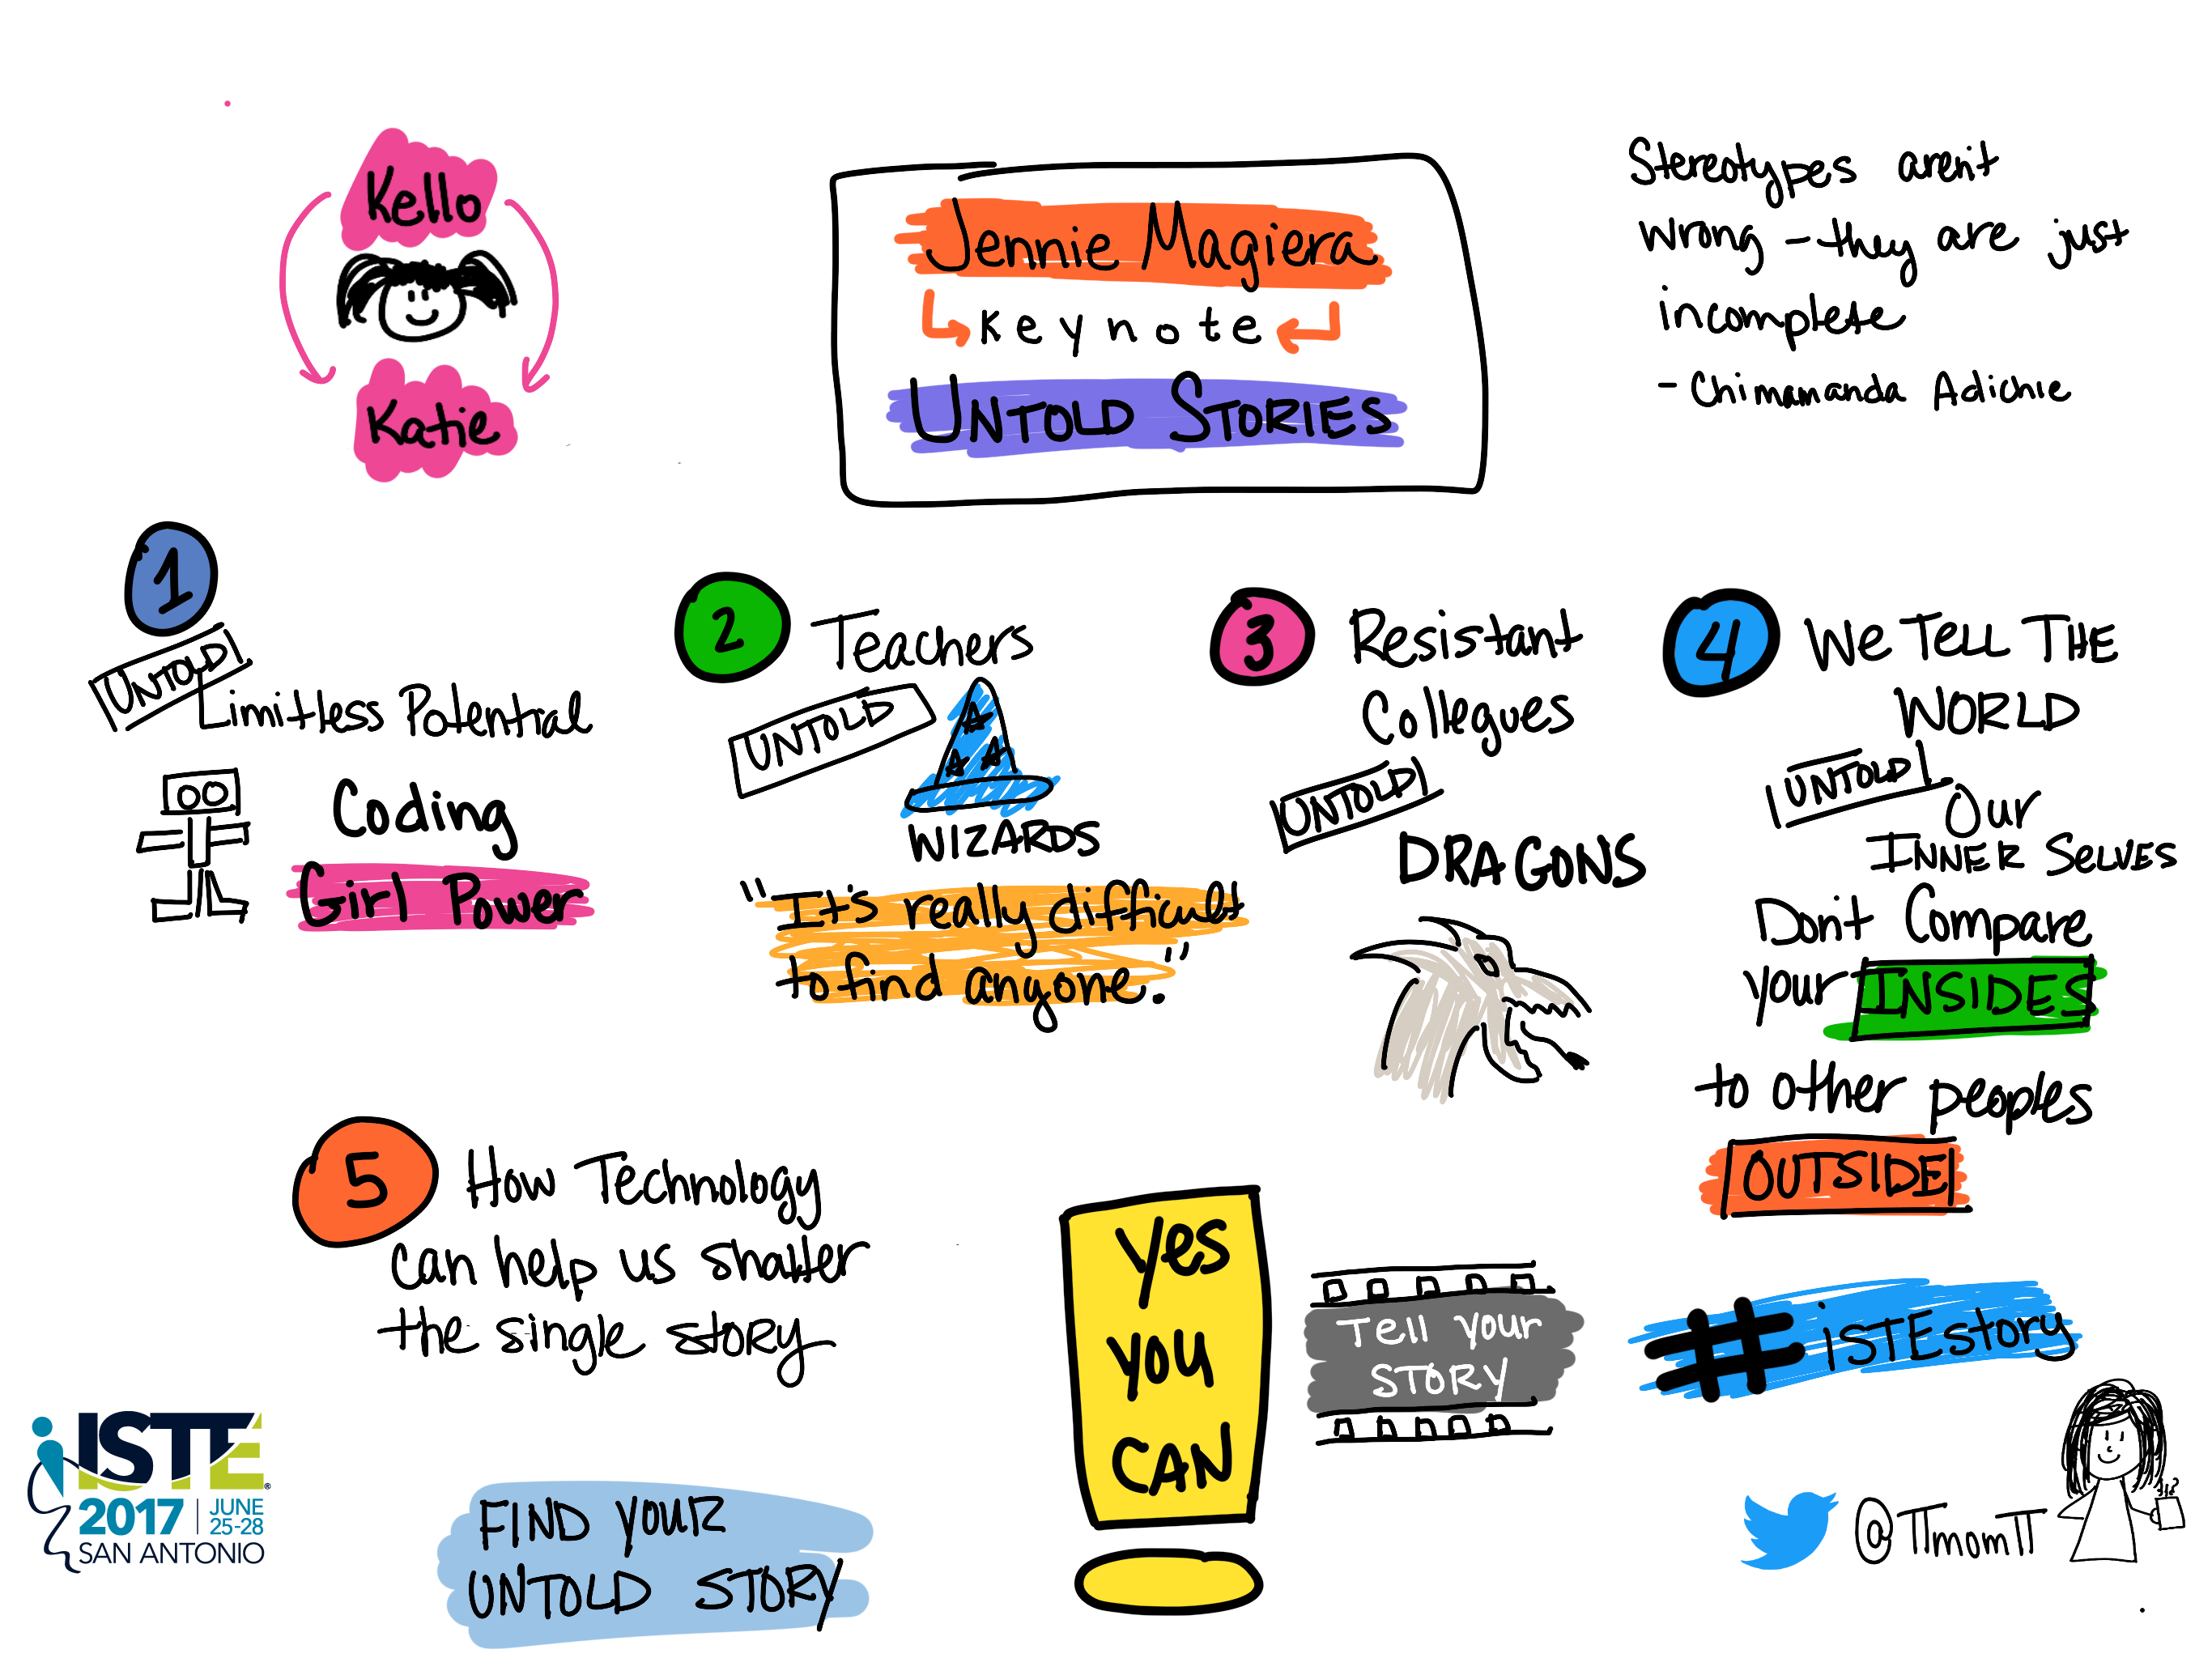 Kello
Katie
Jennie Magiera
keynote
UNTOLD STORIES
Stereotypes aren't
wrong - they are just
incomplete
- Chimamanda Adichie
1
UNTOLD
Limitless Potential
Coding
Girl Power
2
Teachers
UNTOLD
WIZARDS
"It's really difficult
to find anyone."
3
Resistant
Collegues
UNTOLD
DRAGONS
4
WE TELL THE
WORLD
UNTOLD
OUR
INNER SELVES
Don't Compare
your INSIDES
to other peoples
OUTSIDE
5
How Technology
can help us shatter
the single story
Yes
you
CAN
Tell your
STORY
#iSTEstory
ISTE®
2017 | JUNE
25-28
SAN ANTONIO
FIND YOUR
UNTOLD STORY
@TTmomTT